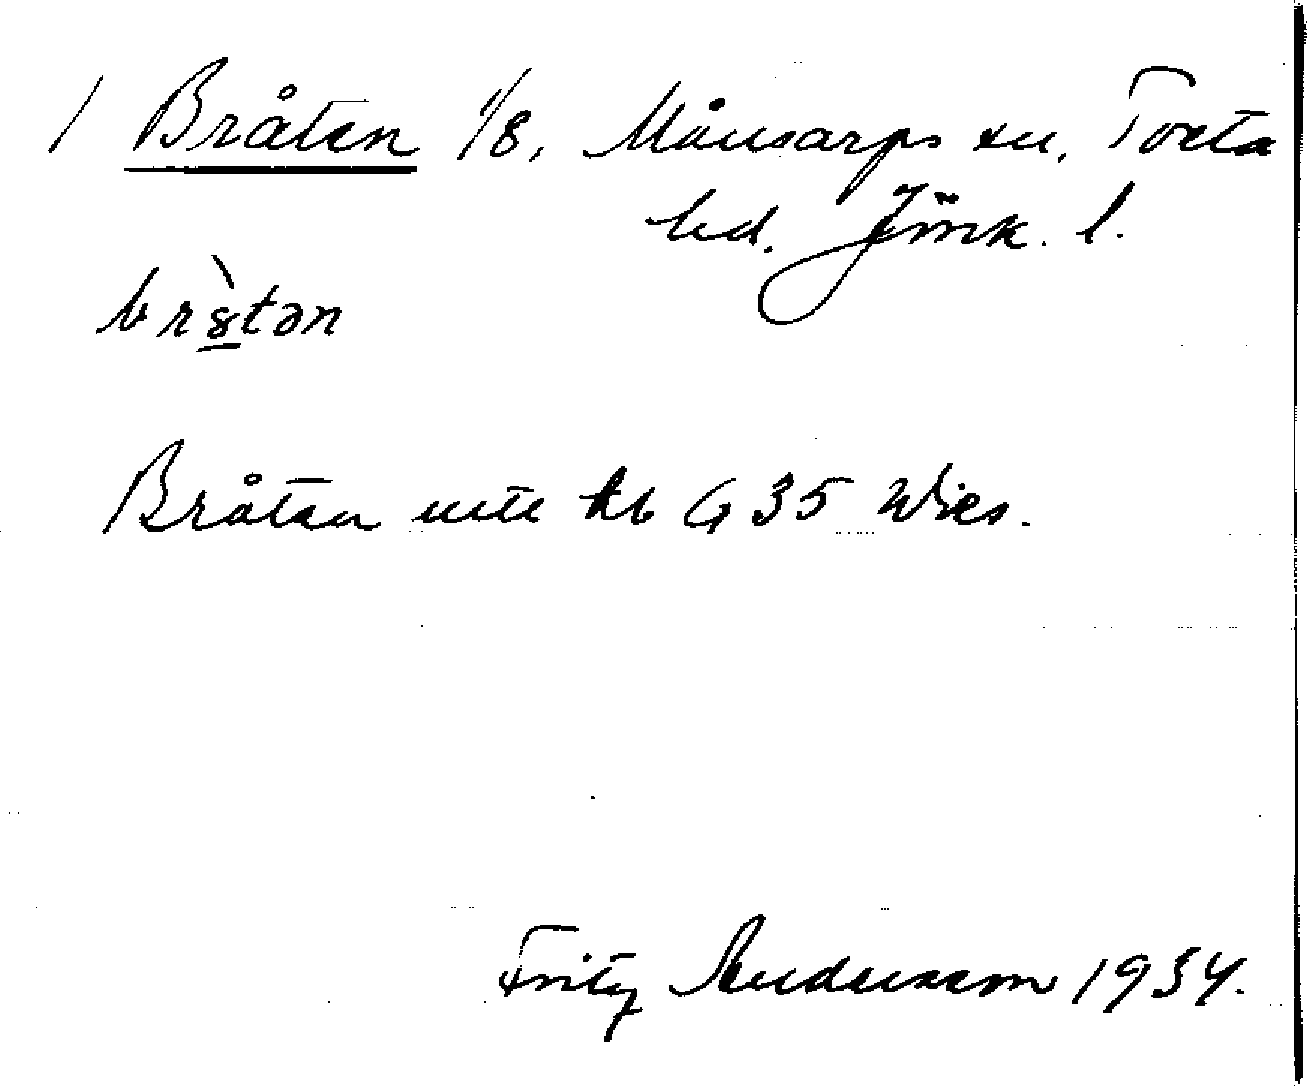 1 Bråten 1/8, Månsarps sn, Tveta
hd. Jönk. l.
br8̀tən
Bråten ute kb G 35 Wies.
Fritz Andersson 1934.